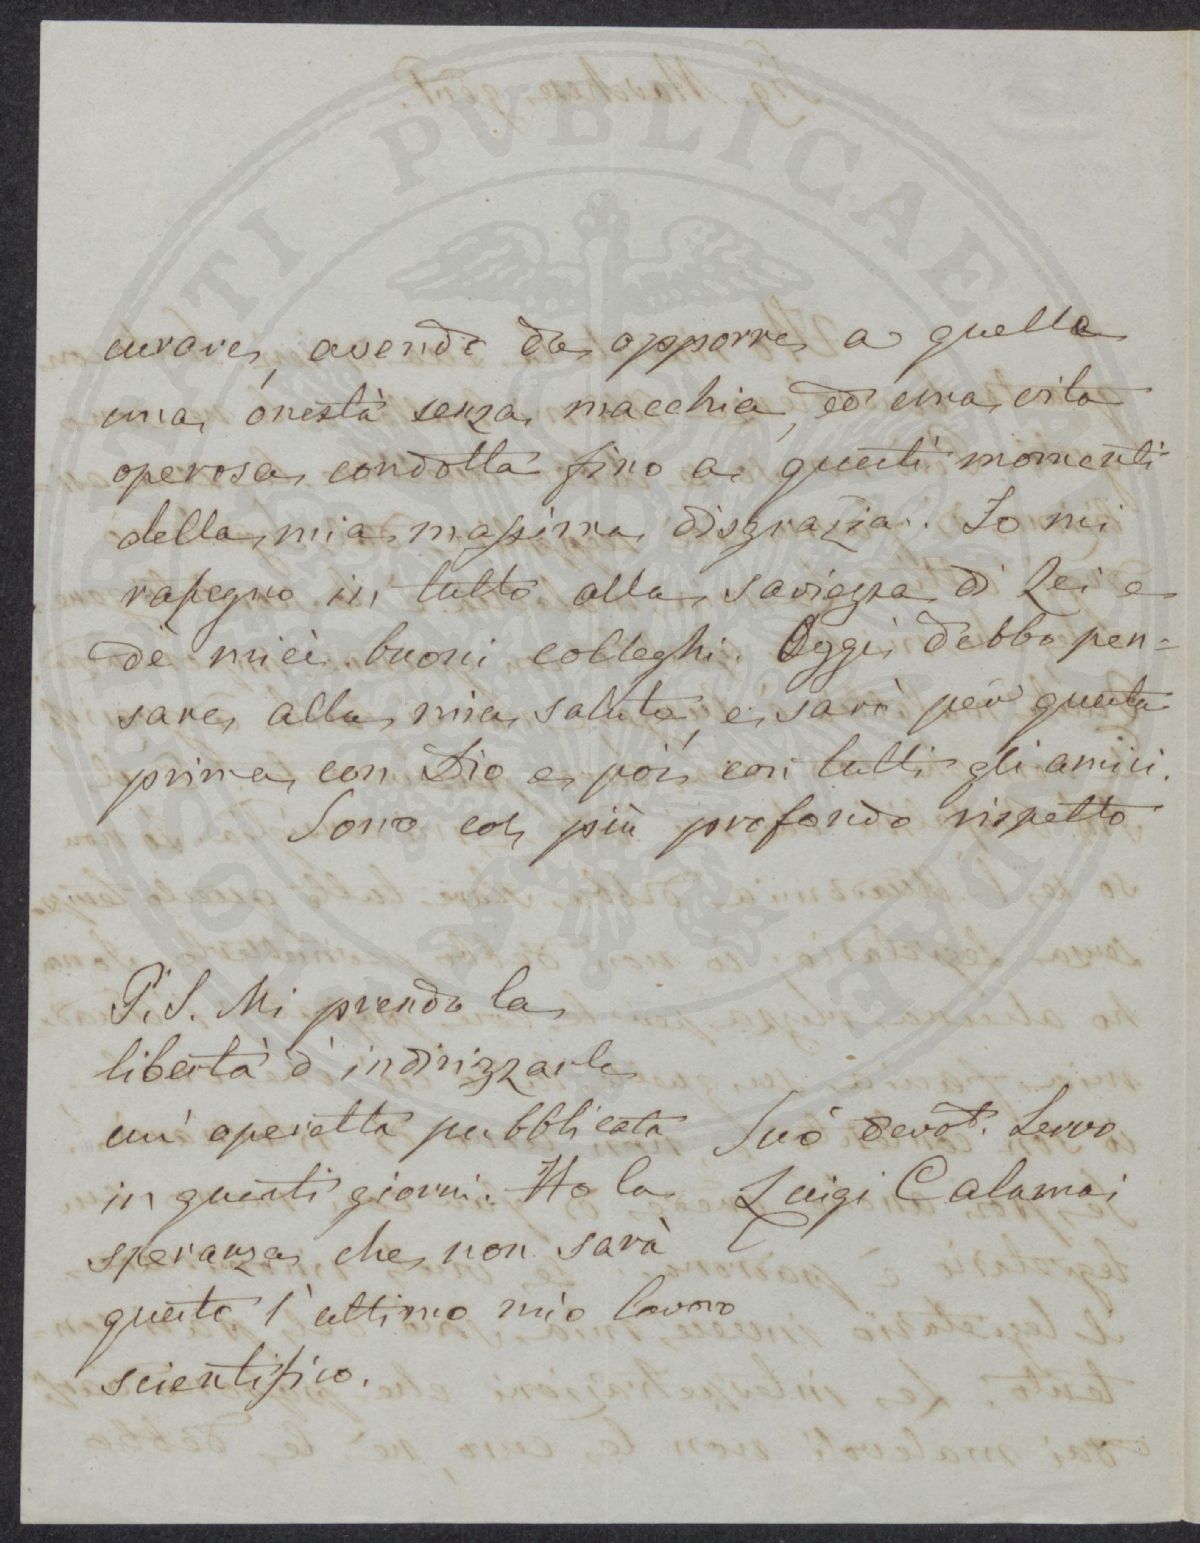 PROSPERITATI PUBLICAE AUGENDAE
curare, avendo da opporre a quella
una onestà senza macchia, ed una vita
operosa condotta fino a questi momenti
della mia massima disgrazia. Io mi
rassegno in tutto alla saviezza di Lei e
de' miei buoni colleghi. Oggi debbo pen=
sare alla mia salute, e sarò per questa
prima con Dio e poi con tutti gli amici.
Sono col più profondo rispetto
P.S. Mi prendo la
libertà d'indirizzarle
un' operetta pubblicata
in questi giorni. Ho la
speranza che non sarà
questo l'ultimo mio lavoro
scientifico.
Suo devot. Servo
Luigi Calamai